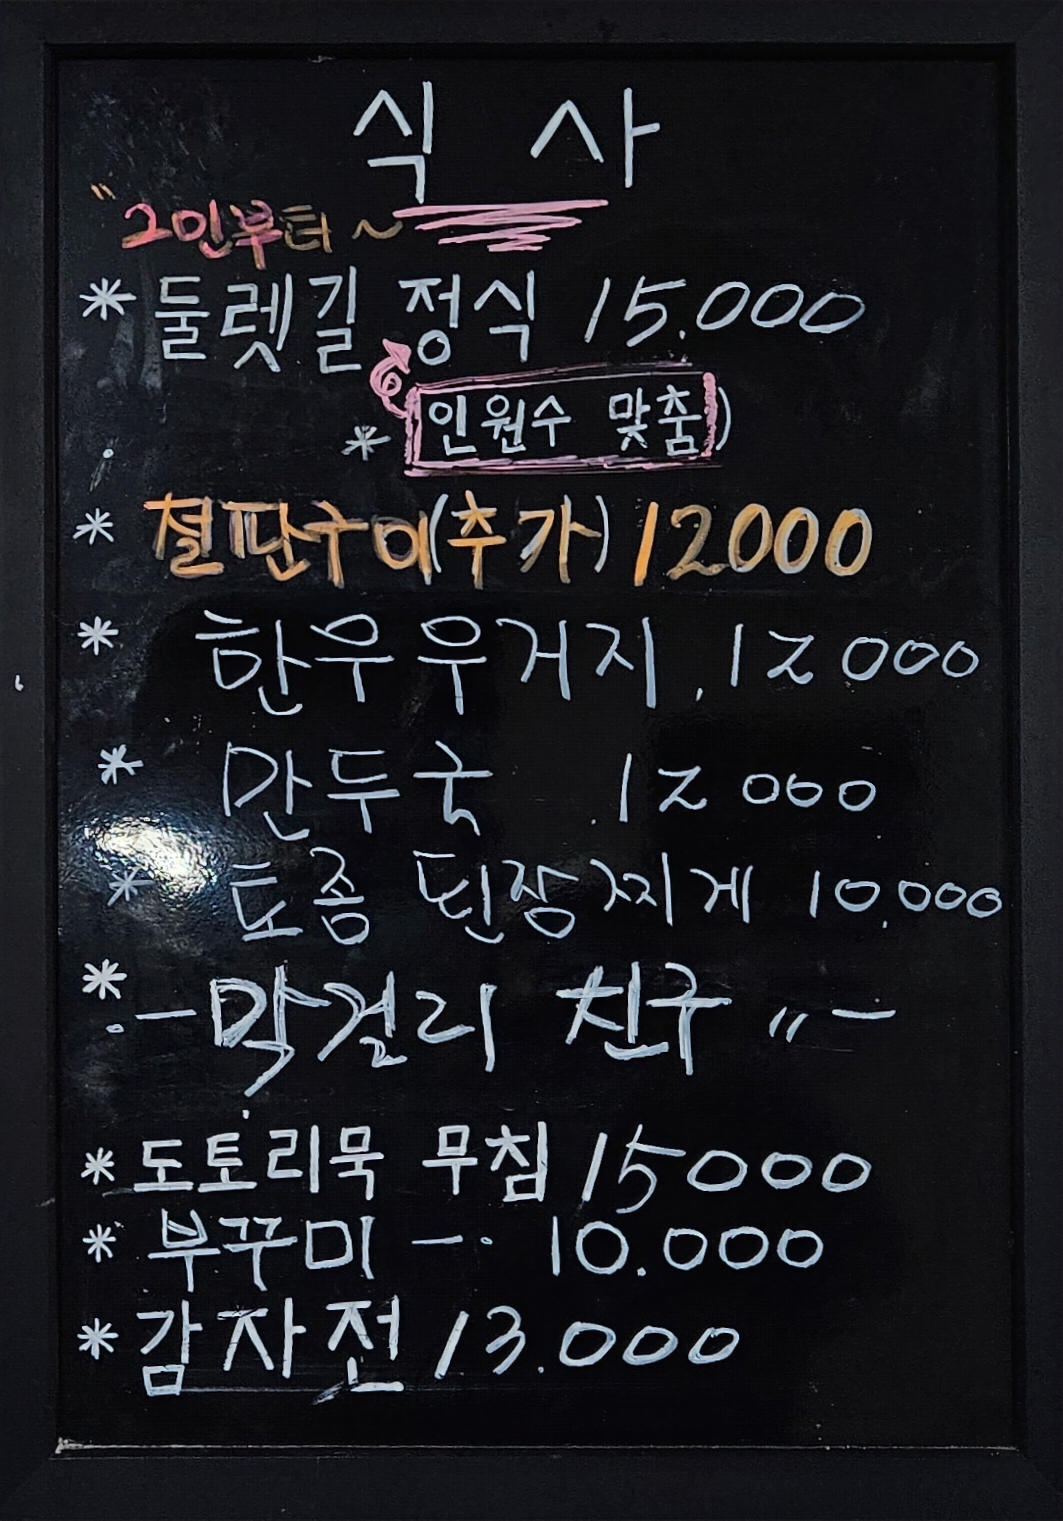 식 사
"2인부터~
* 둘렛길 정식 15.000
* 인원수 맞춤)
* 철판구이(추가) 12000
* 한우우거지 12000
* 만두국 12000
* 토종 된장찌게 10.000
* - 막걸리 친구 〃 -
* 도토리묵 무침 15000
* 부꾸미 - 10.000
* 감자전 13.000